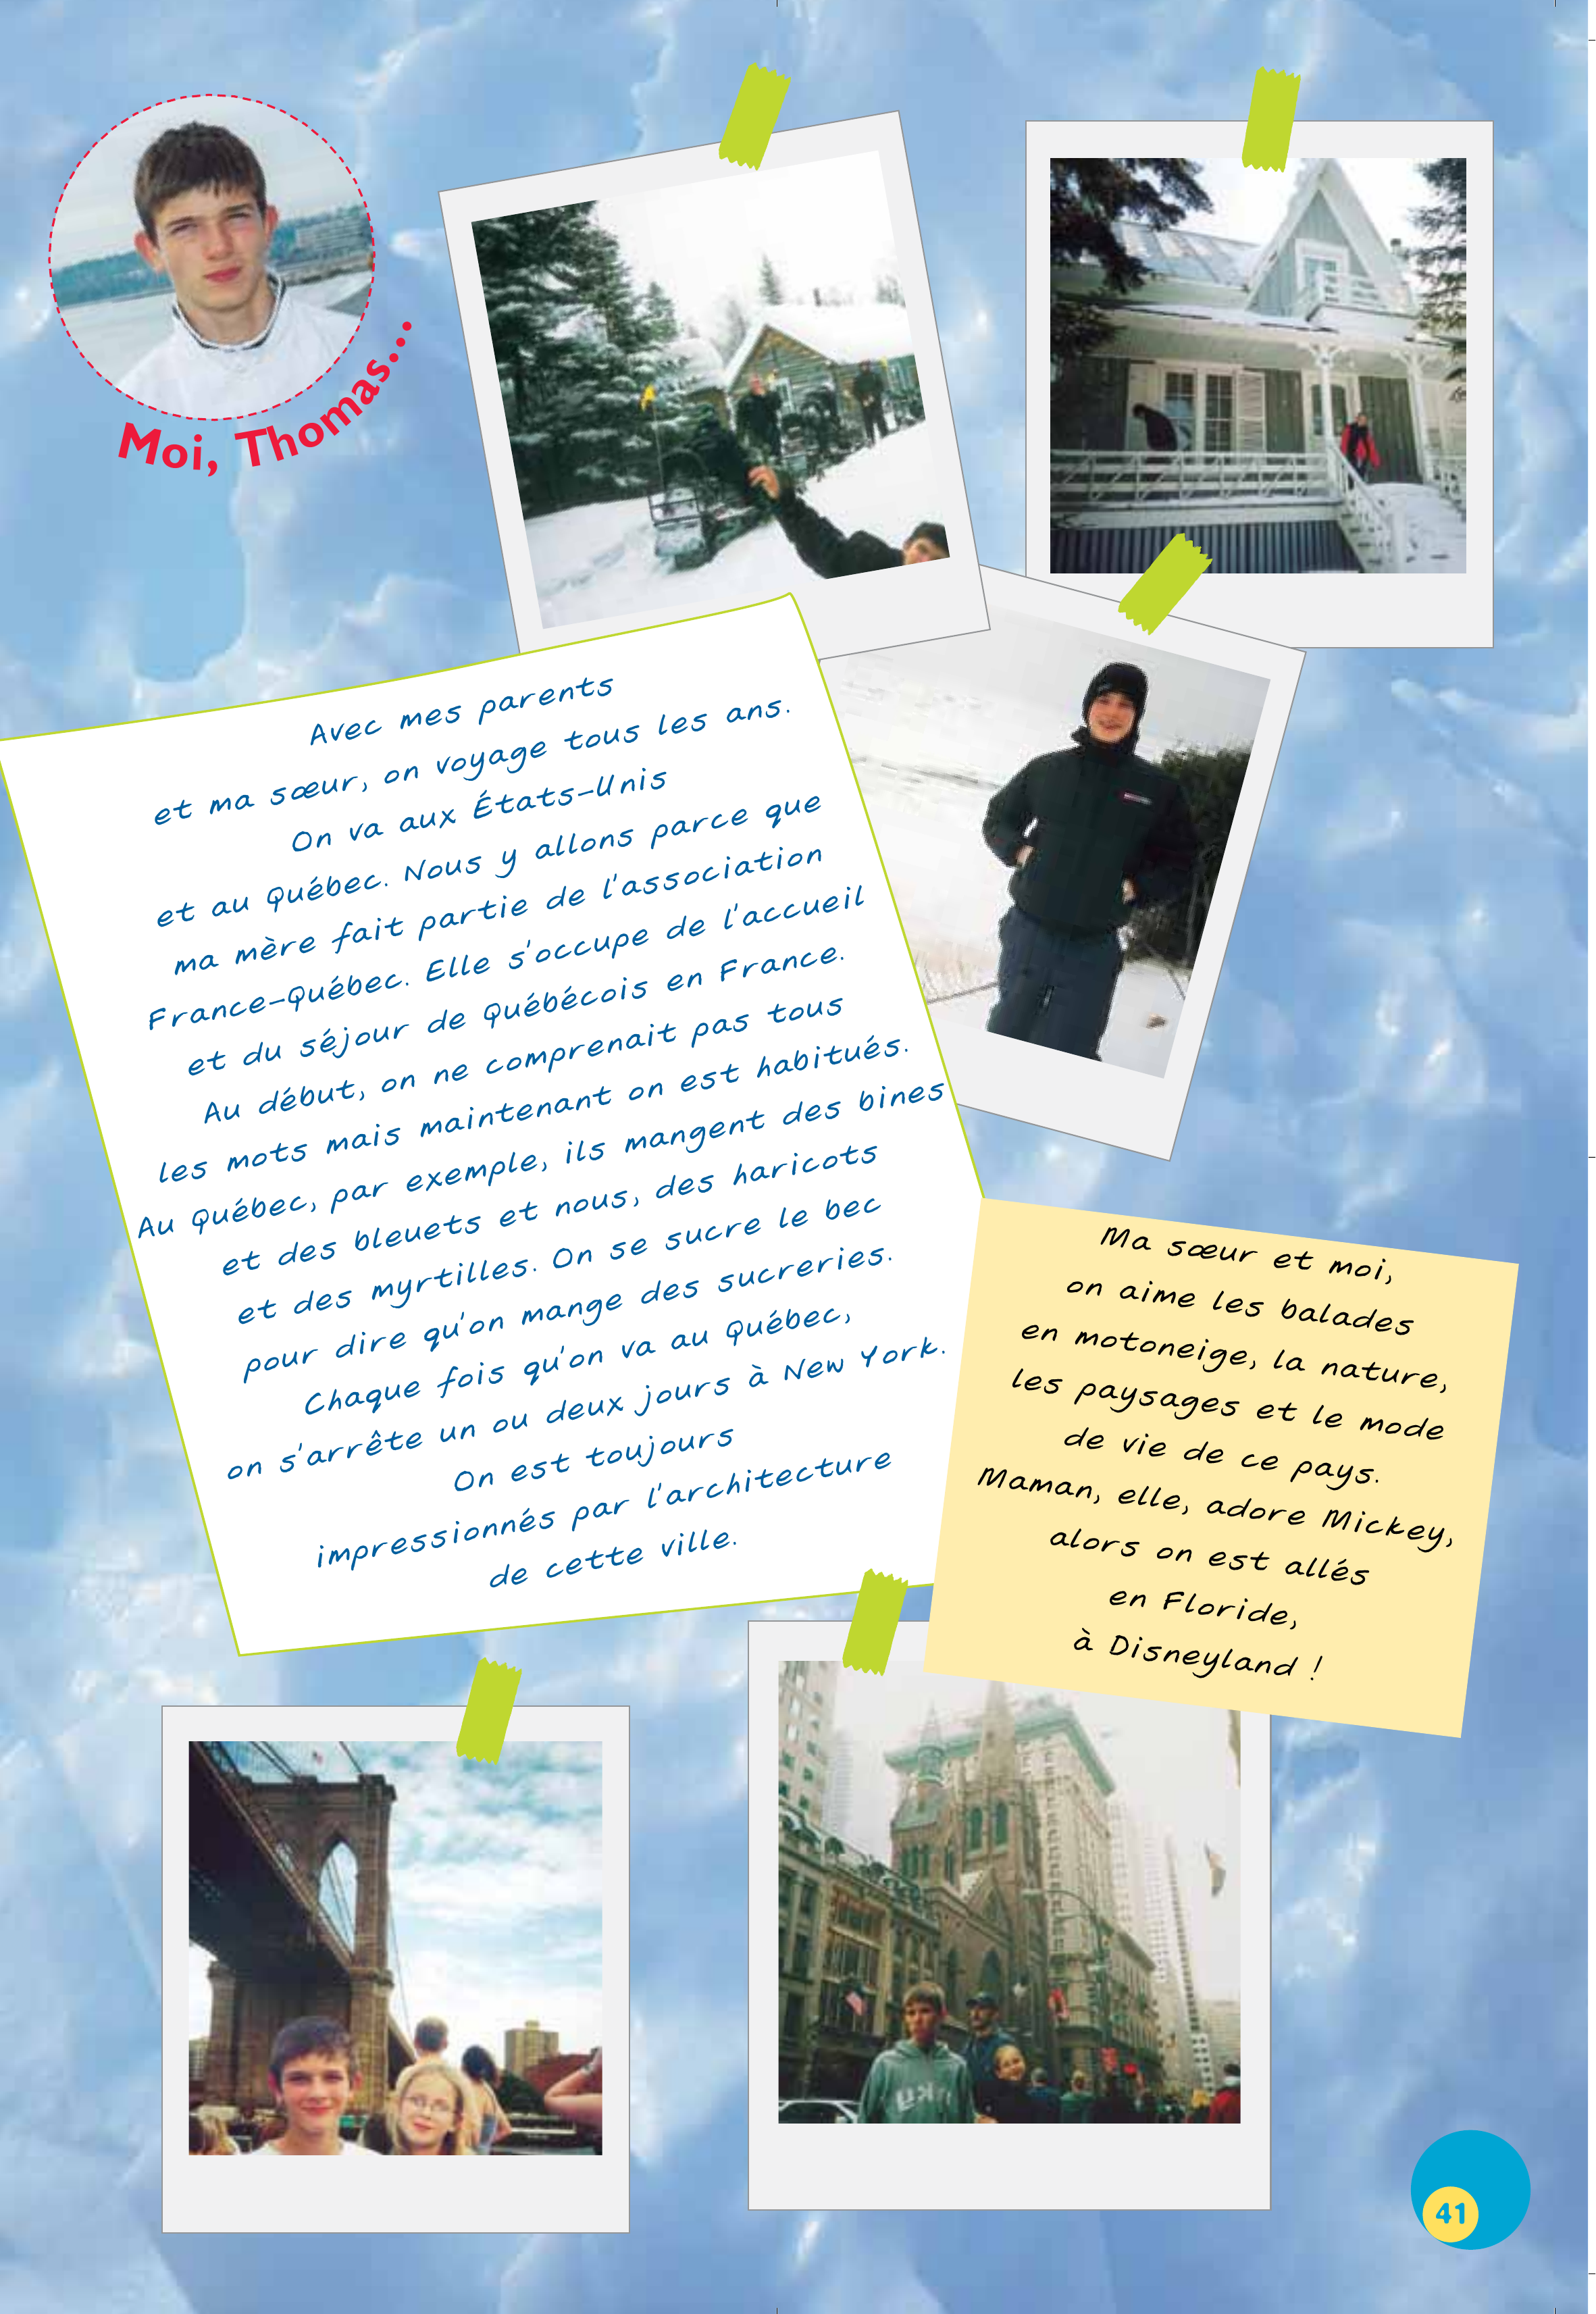 Moi, Thomas...
Avec mes parents
et ma sœur, on voyage tous les ans.
On va aux États-Unis
et au Québec. Nous y allons parce que
ma mère fait partie de l'association
France-Québec. Elle s'occupe de l'accueil
et du séjour de Québécois en France.
Au début, on ne comprenait pas tous
les mots mais maintenant on est habitués.
Au Québec, par exemple, ils mangent des bines
et des bleuets et nous, des haricots
et des myrtilles. On se sucre le bec
pour dire qu'on mange des sucreries.
Chaque fois qu'on va au Québec,
on s'arrête un ou deux jours à New York.
On est toujours
impressionnés par l'architecture
de cette ville.
Ma sœur et moi,
on aime les balades
en motoneige, la nature,
les paysages et le mode
de vie de ce pays.
Maman, elle, adore Mickey,
alors on est allés
en Floride,
à Disneyland !
41